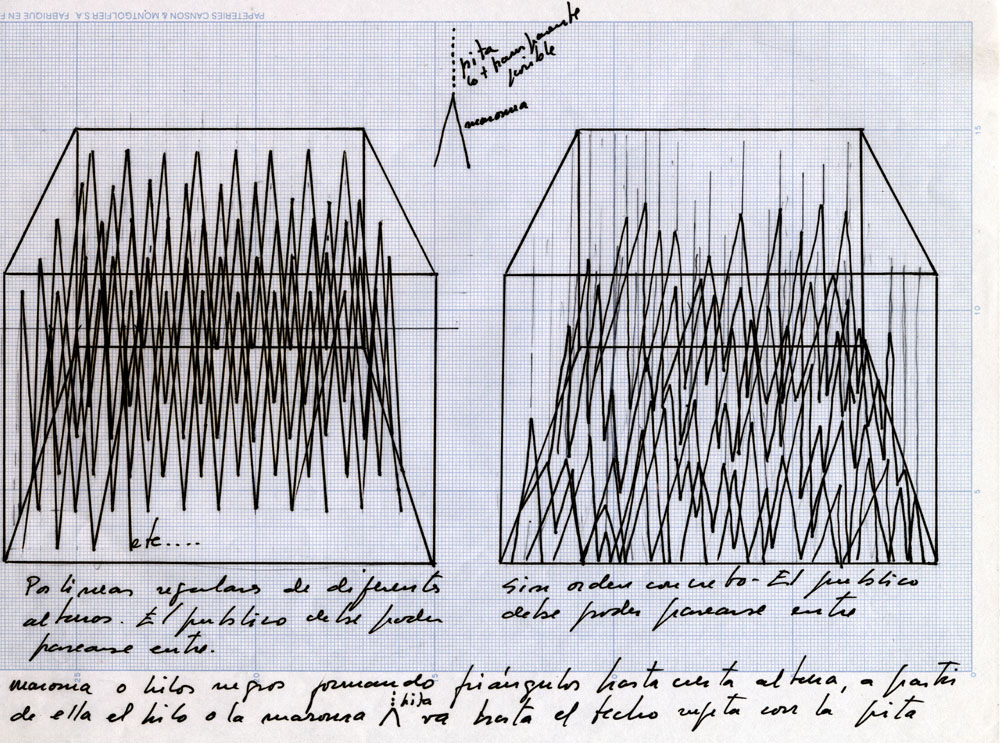 PAPETERIES CANSON & MONTGOLFIER S.A. FABRIQUE EN F
pita
lo + transparente
posible
maroma
15
10
5
0
etc....
Por lineas regulares de diferentes
alturas. El publico debe poder
pasearse entre.
Sin orden concreto - El publico
debe poder pasearse entre
25
20
maroma o hilos negros formando triángulos hasta cierta altura, a partir
de ella el hilo o la maroma pita va hasta el techo sujeta con la pita